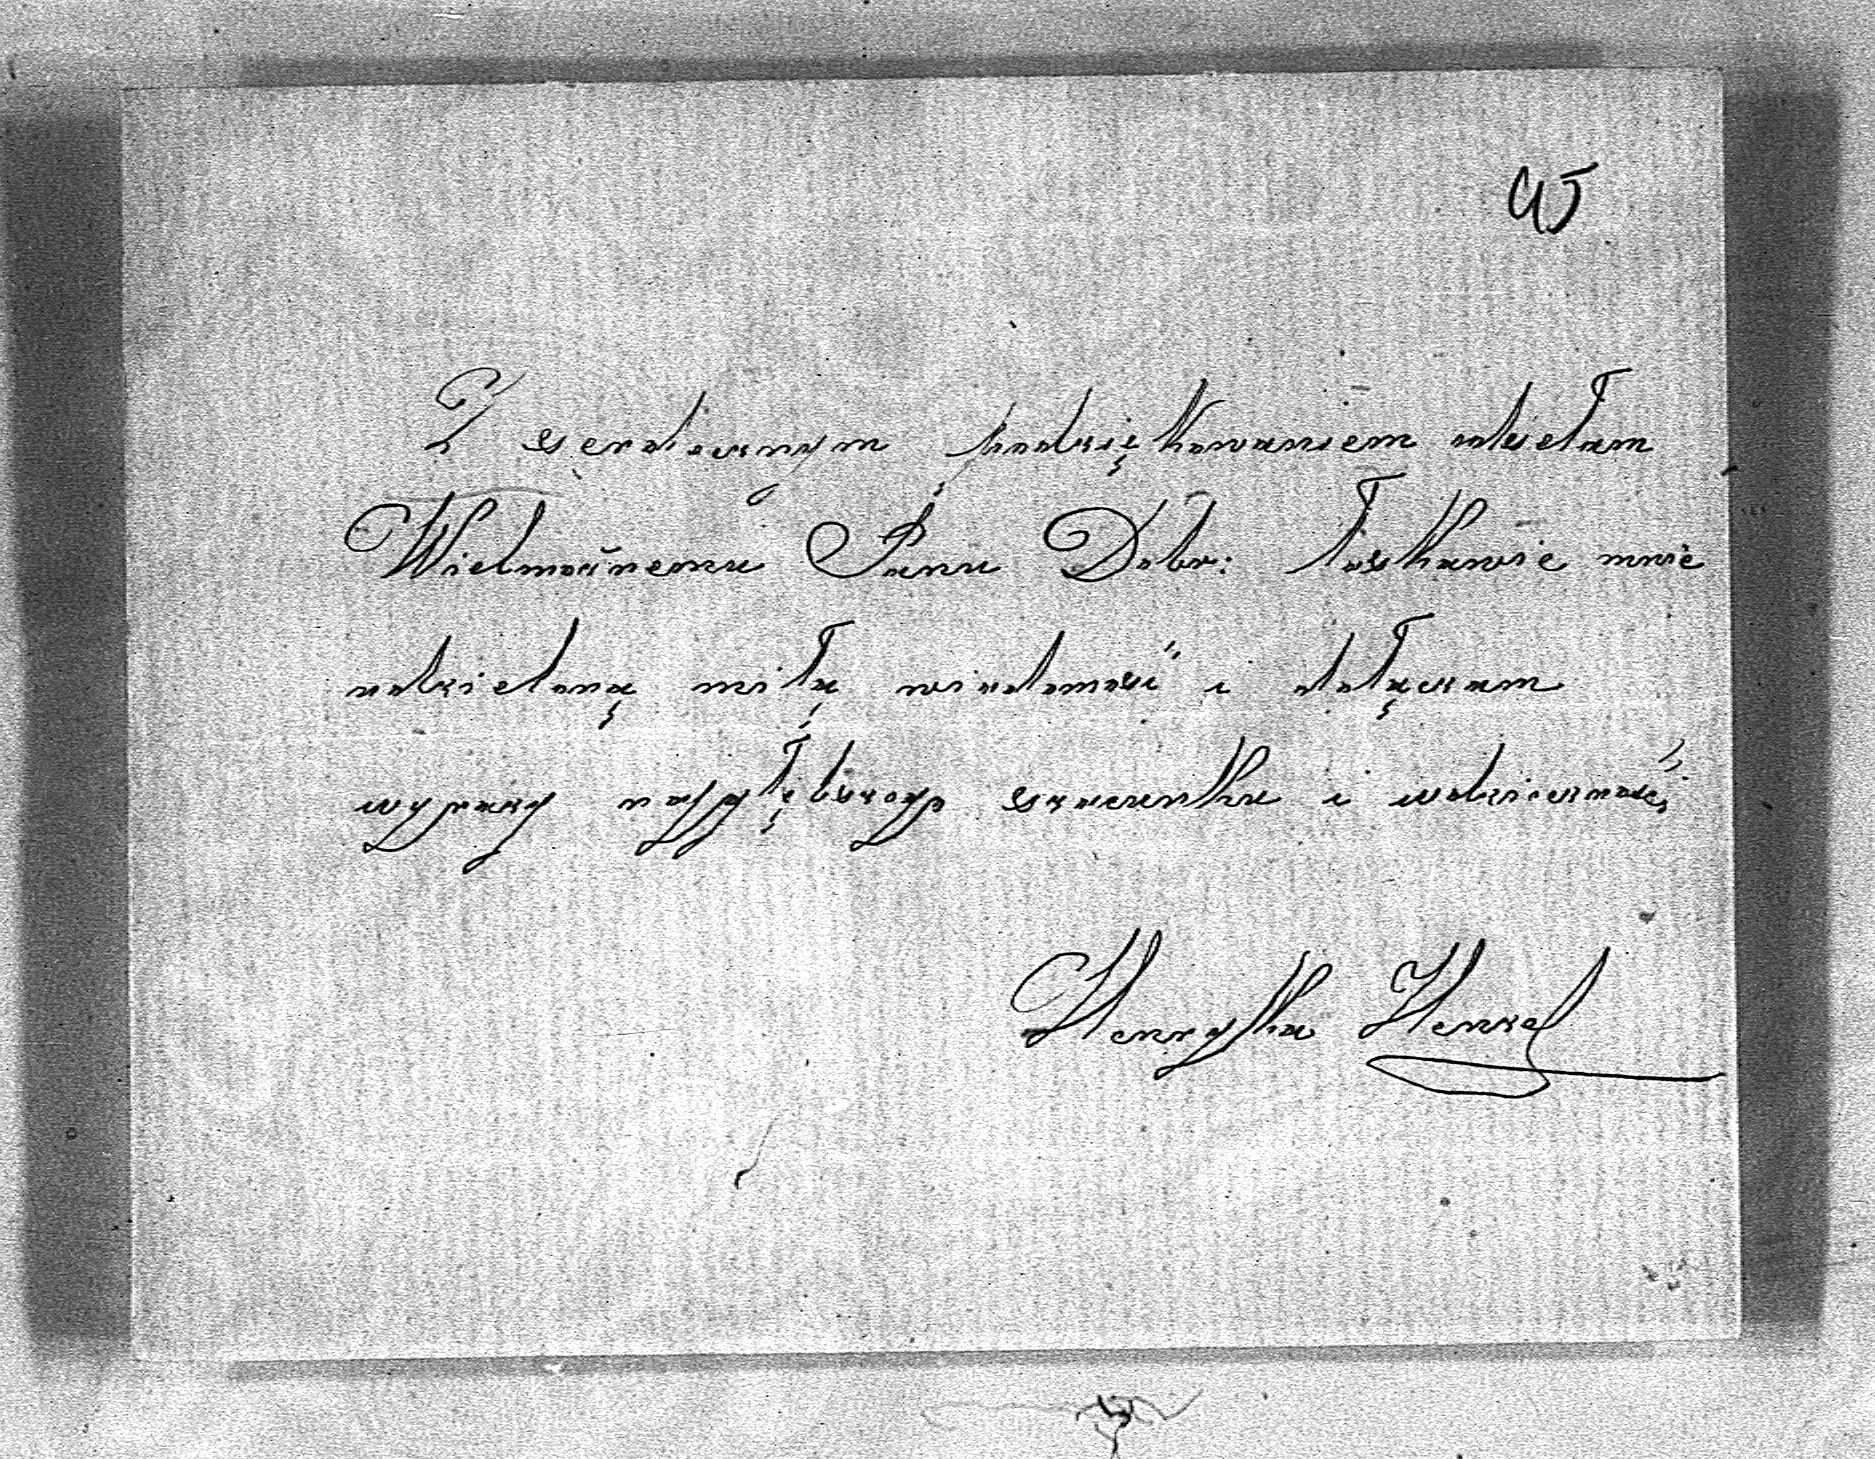 45
Z serdecznym podziękowaniem odsełam
Wielmożnemu Panu Dobr: łaskawie mnie
udzieloną miłą wiadomość i dołączam
wyrazy najgłębszego szacunku i wdzięczności
Henryka Henzel